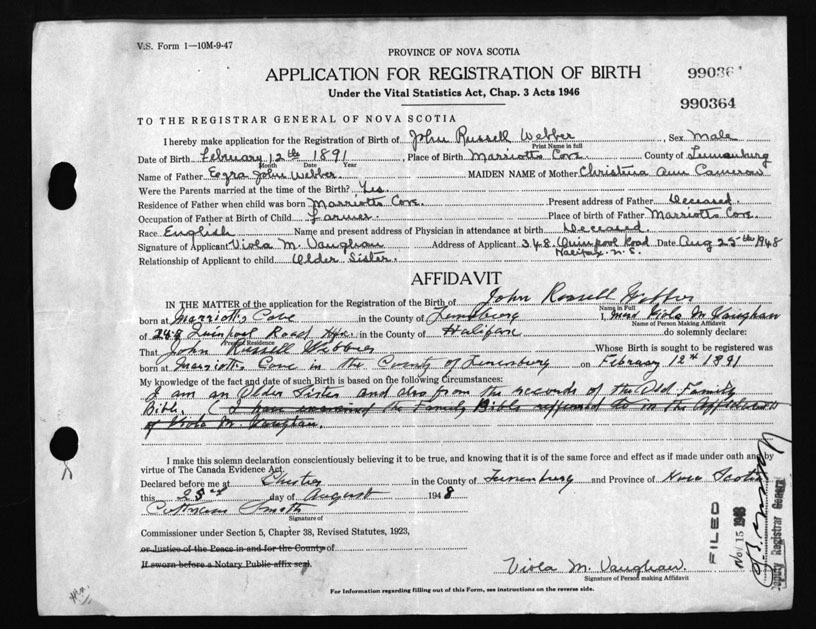 V.S. Form 1—10M-9-47
PROVINCE OF NOVA SCOTIA
APPLICATION FOR REGISTRATION OF BIRTH
Under the Vital Statistics Act, Chap. 3 Acts 1946
990364
990364
TO THE REGISTRAR GENERAL OF NOVA SCOTIA
I hereby make application for the Registration of Birth of John Russell Webber, Sex Male
Print Name in full
Date of Birth February 12th 1891, Place of Birth Marriotts Cove County of Lunenburg
Month Date Year
Name of Father Ezra John Webber. MAIDEN NAME of Mother Christina Ann Cameron
Were the Parents married at the time of the Birth? Yes.
Residence of Father when child was born Marriotts Cove. Present address of Father Deceased.
Occupation of Father at Birth of Child Farmer. Place of birth of Father Marriotts Cove.
Race English Name and present address of Physician in attendance at birth Deceased.
Signature of Applicant Viola M. Vaughan Address of Applicant 348 Quinpool Road Date Aug 25th 1948
Halifax. N.S.
Relationship of Applicant to child Older Sister.
AFFIDAVIT
IN THE MATTER of the application for the Registration of the Birth of John Russell Webber
Name in Full
born at Marriotts Cove in the County of Lunenburg I, Mrs Viola M Vaughan
Name of Person Making Affidavit
of 348 Quinpool Road Hfx. in the County of Halifax do solemnly declare:
Present Residence
That John Russell Webber Whose Birth is sought to be registered was
born at Marriotts Cove in the County of Lunenburg on February 12th 1891
My knowledge of the fact and date of such Birth is based on the following Circumstances:
I am an Older Sister and also from the records of the Old Family
Bible. (I have examined the Family Bible referred to in the Affidavit
of Viola M. Vaughan.
I make this solemn declaration conscientiously believing it to be true, and knowing that it is of the same force and effect as if made under oath and by
virtue of The Canada Evidence Act.
Declared before me at Chester in the County of Lunenburg and Province of Nova Scotia
this 25th day of August 1948
Smith
Signature of
Commissioner under Section 5, Chapter 38, Revised Statutes, 1923,
or Justice of the Peace in and for the County of
If sworn before a Notary Public affix seal.
Viola M. Vaughan
Signature of Person making Affidavit
FILED
Nov 15 1948
Deputy Registrar General
For Information regarding filling out of this Form, see instructions on the reverse side.